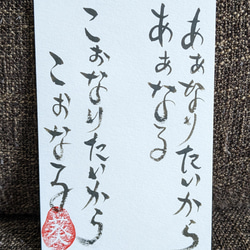 ああなりたいから
ああなる
こおなりたいから
こおなる